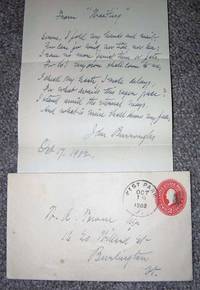 From "Waiting"
Serene, I fold my hands and wait,
Nor care for wind, nor tide, nor sea;
I rave no more gainst time or fate,
For lo! my own shall come to me.
I stay my haste, I make delays,
For what avails this eager pace?
I stand amid the eternal ways,
And what is mine shall know my face.
John Burroughs
Oct 17, 1902.
WEST PARK
OCT
1902
Burlington
Vt.